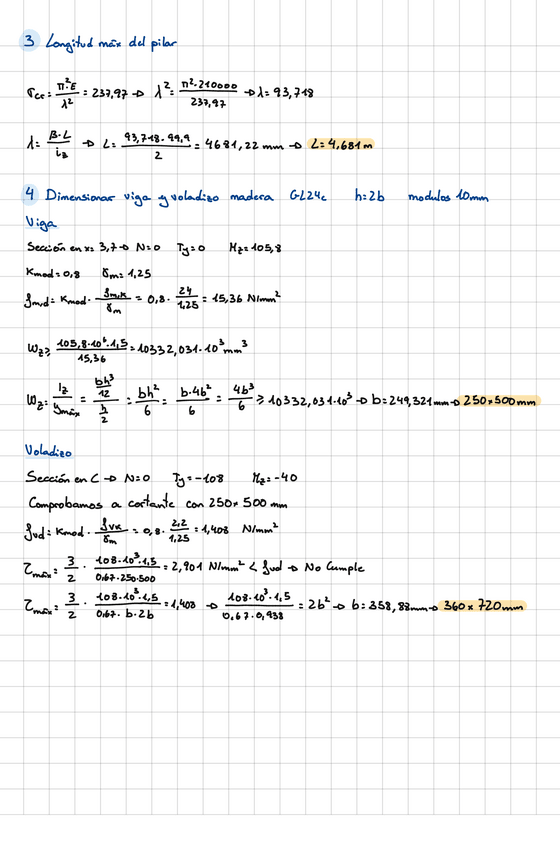 3 Longitud máx del pilar
σcr = π²·E / λ² = 237,97 → λ² = π²·210000 / 237,97 → λ = 93,718
λ = β·L / iz → L = 93,718·99,9 / 2 = 4681,22 mm → L = 4,681 m
4 Dimensionar viga y voladizo madera GL24c h=2b modulos 10mm
Viga
Sección en x = 3,7 → N=0 Ty=0 Mz=105,8
Kmod = 0,8 γm = 1,25
fmd = Kmod · fm,k / γm = 0,8 · 24 / 1,25 = 15,36 N/mm²
Wz ≥ 105,8·10⁶·1,5 / 15,36 = 10332,031·10³ mm³
Wz = Iz / ymáx = (bh³ / 12) / (h / 2) = bh² / 6 = b·4b² / 6 = 4b³ / 6 ≥ 10332,031·10³ → b = 249,321 mm → 250×500 mm
Voladizo
Sección en C → N=0 Ty=-108 Mz=-40
Comprobamos a cortante con 250×500 mm
fvd = Kmod · fvk / γm = 0,8 · 2,2 / 1,25 = 1,408 N/mm²
τmáx = 3 / 2 · 108·10³·1,5 / 0,67·250·500 = 2,901 N/mm² < fvd → No Cumple
τmáx = 3 / 2 · 108·10³·1,5 / 0,67·b·2b = 1,408 → 108·10³·1,5 / 0,67·0,938 = 2b² → b = 358,88mm → 360 × 720mm